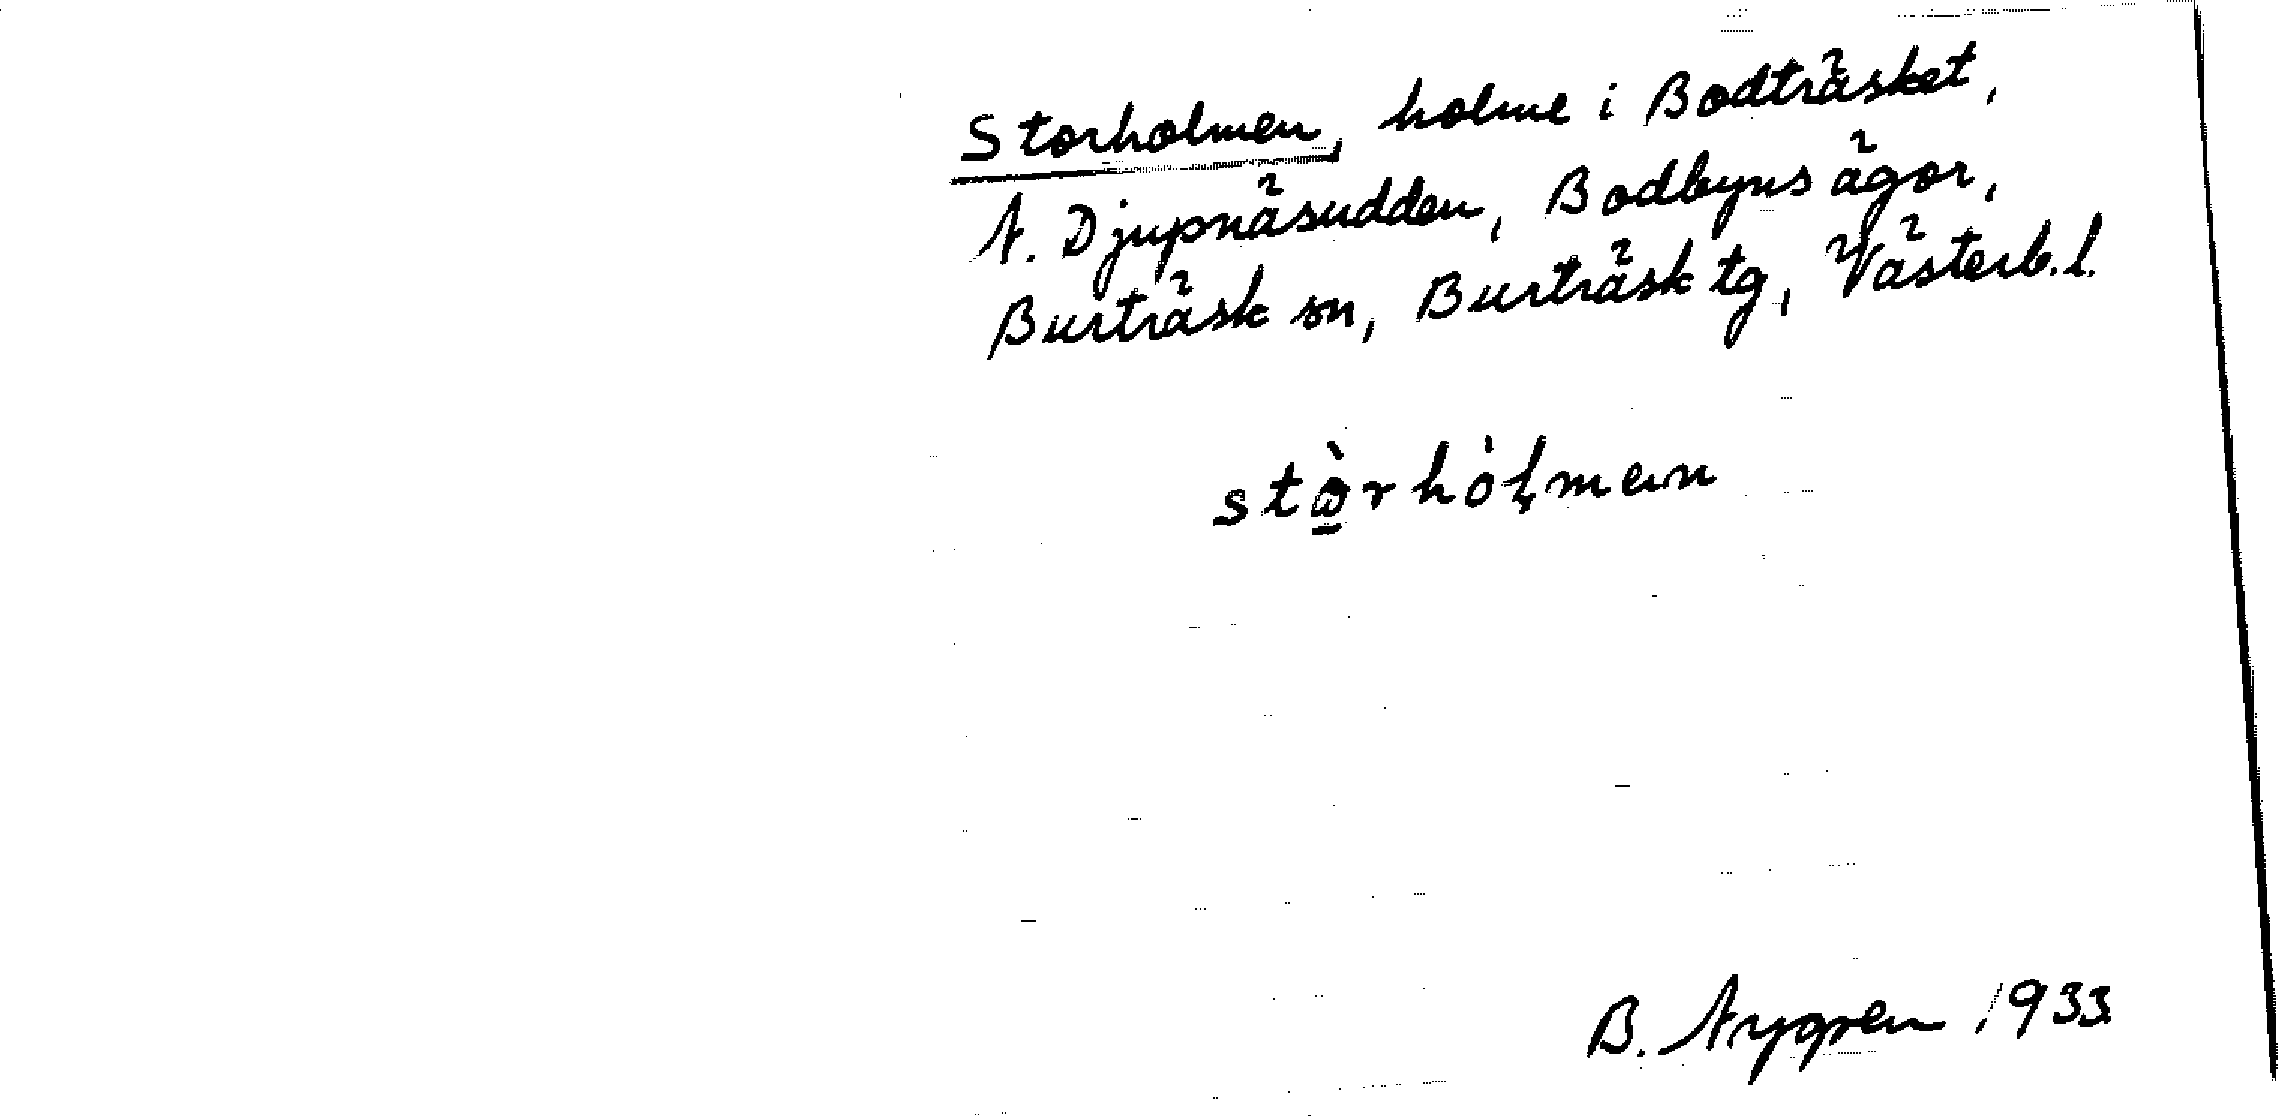 Storholmen, holme i Bodträsket,
N. Djupnäsudden, Bodbyns ägor,
Burträsk sn, Burträsk tg, Västerb. l.
stò̱rhòɭmen
B. Nygren 1933